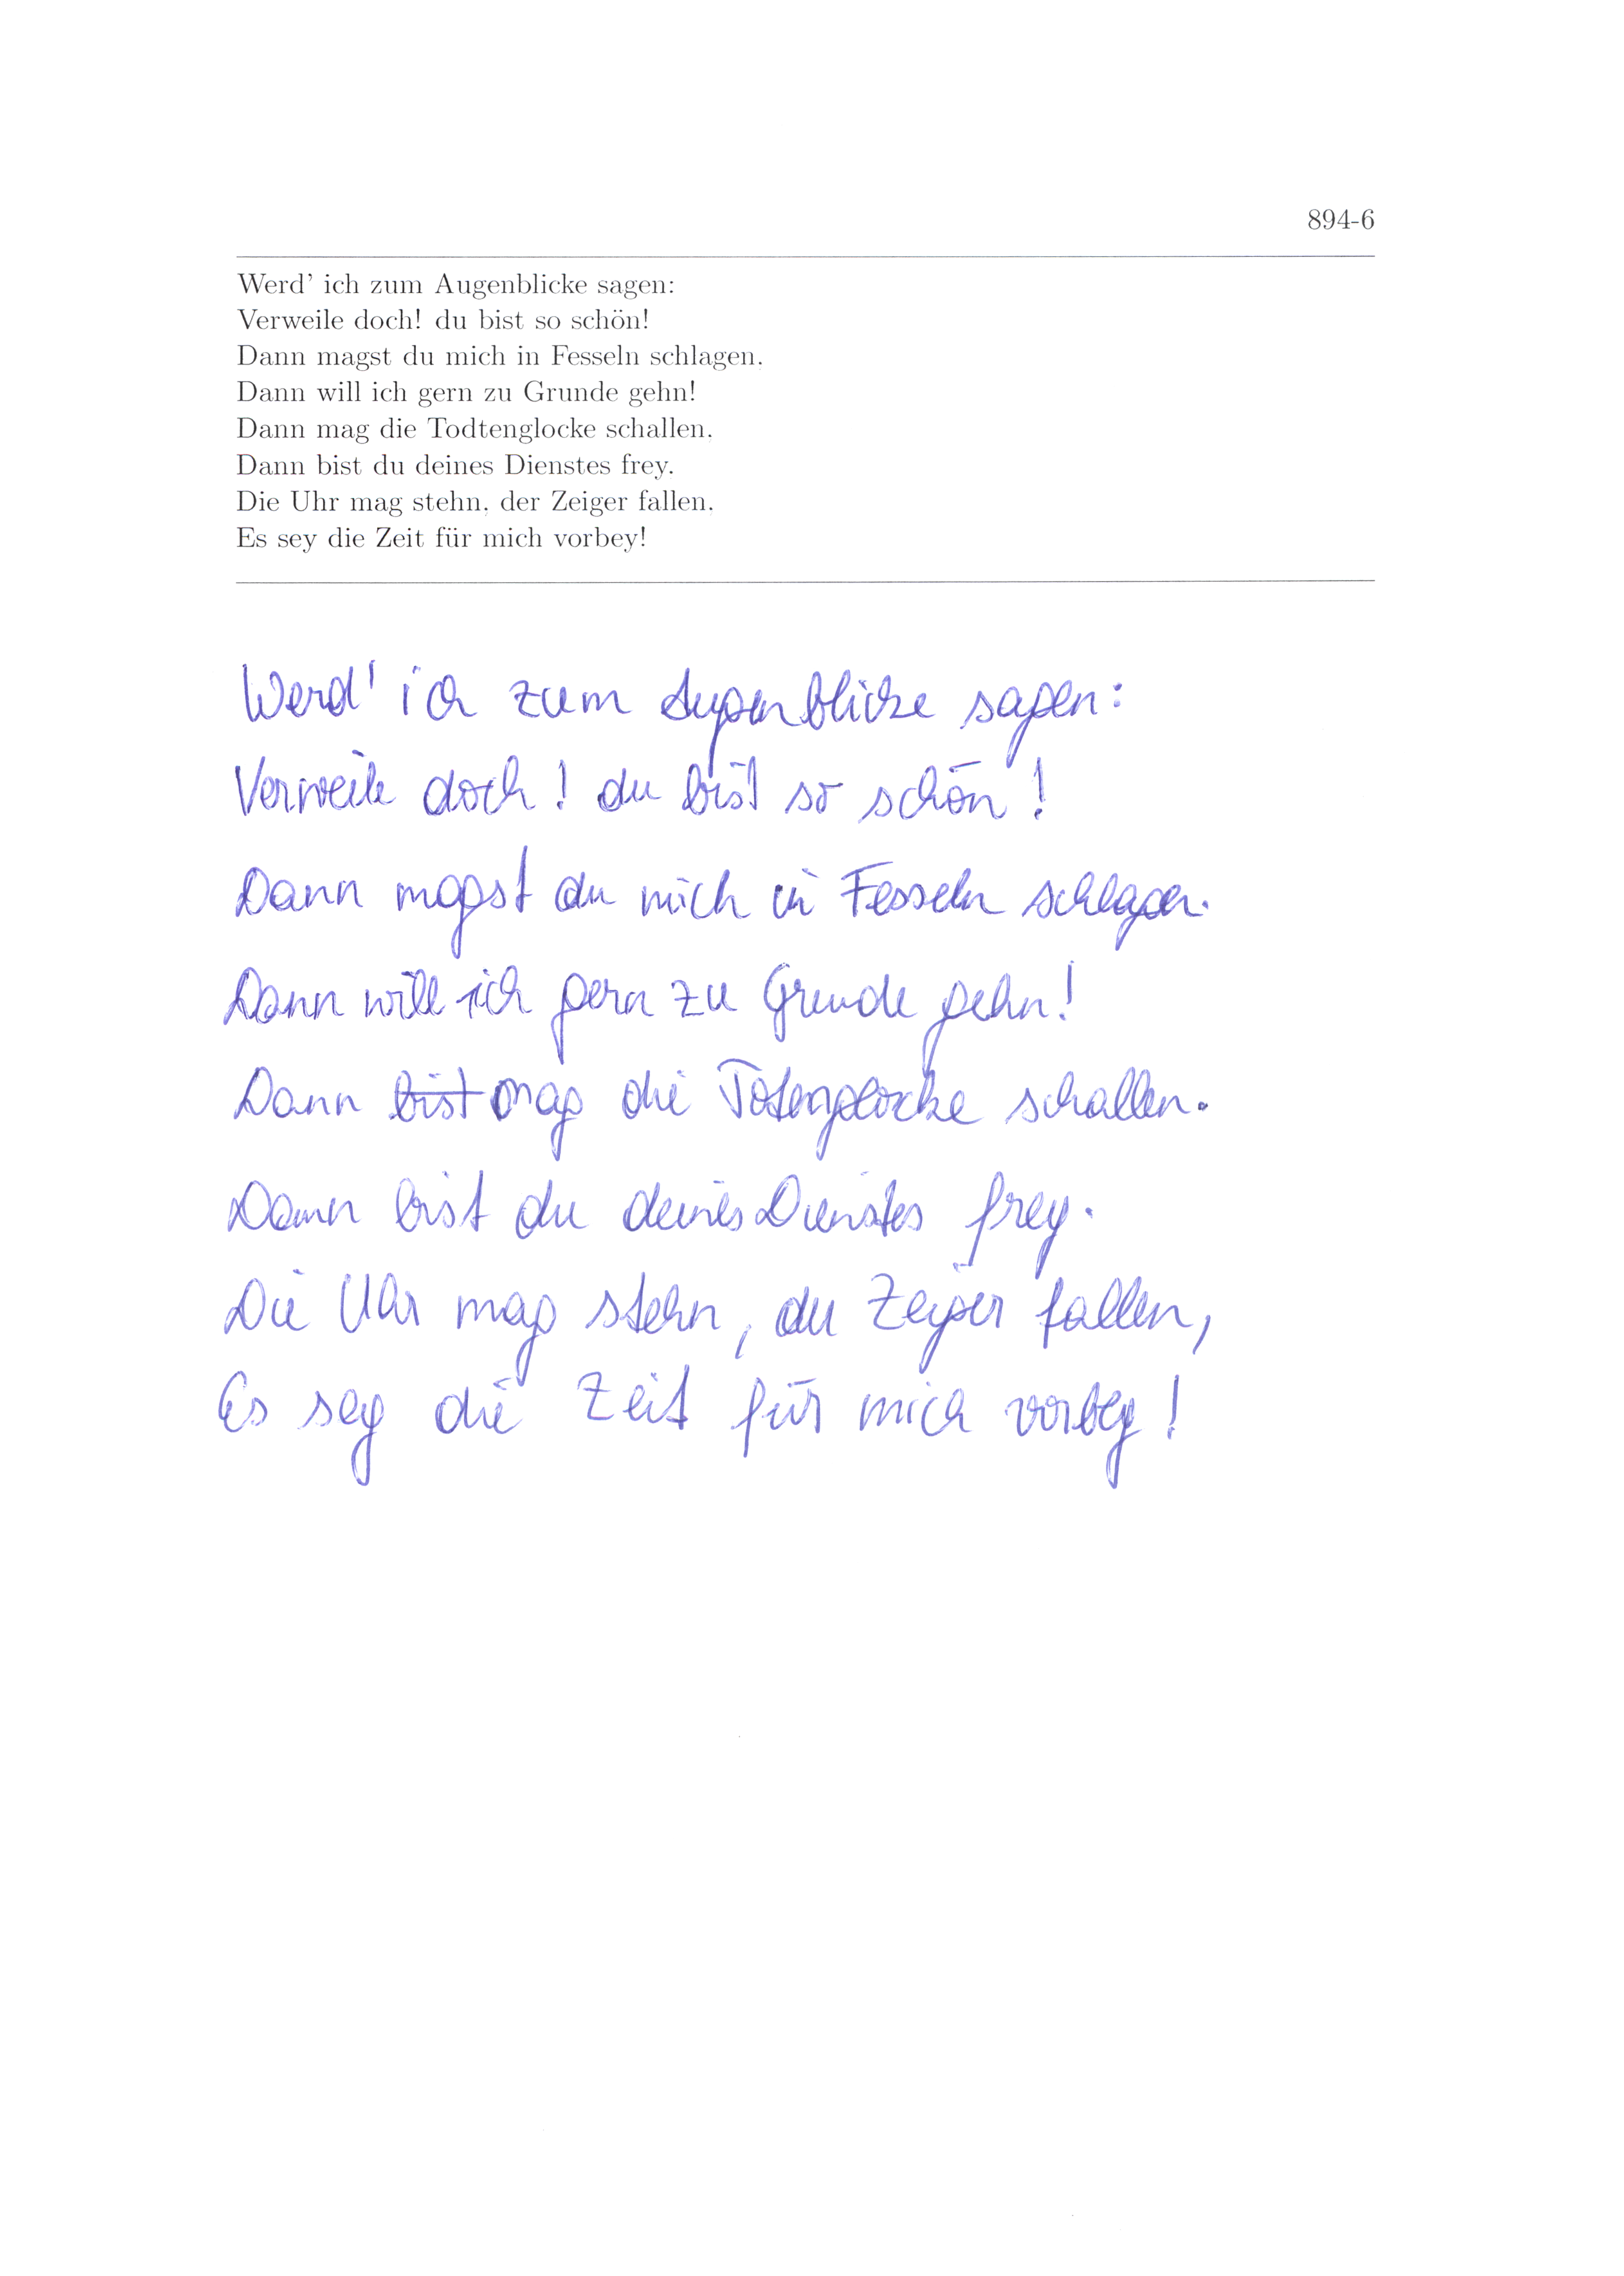 894-6
Werd' ich zum Augenblicke sagen:
Verweile doch! du bist so schön!
Dann magst du mich in Fesseln schlagen.
Dann will ich gern zu Grunde gehn!
Dann mag die Todtenglocke schallen.
Dann bist du deines Dienstes frey.
Die Uhr mag stehn, der Zeiger fallen.
Es sey die Zeit für mich vorbey!
Werd' ich zum Augenblicke sagen:
Verweile doch! du bist so schön!
Dann magst du mich in Fesseln schlagen.
Dann will ich gern zu Grunde gehn!
Dann bist mag die Totenglocke schallen.
Dann bist du deines Dienstes frey.
Die Uhr mag stehn, der Zeiger fallen,
Es sey die Zeit für mich vorbey!